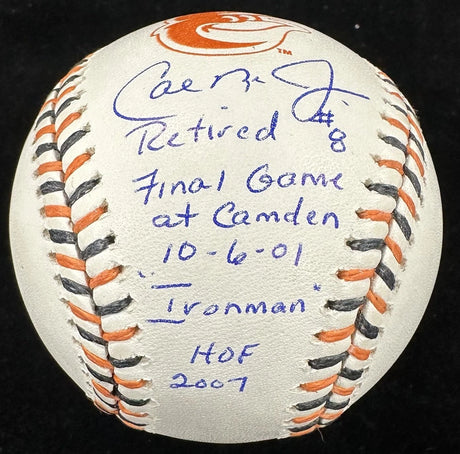 TM
Cal Ripken Jr.
Retired #8
Final Game
at Camden
10-6-01
"Ironman"
HOF
2007